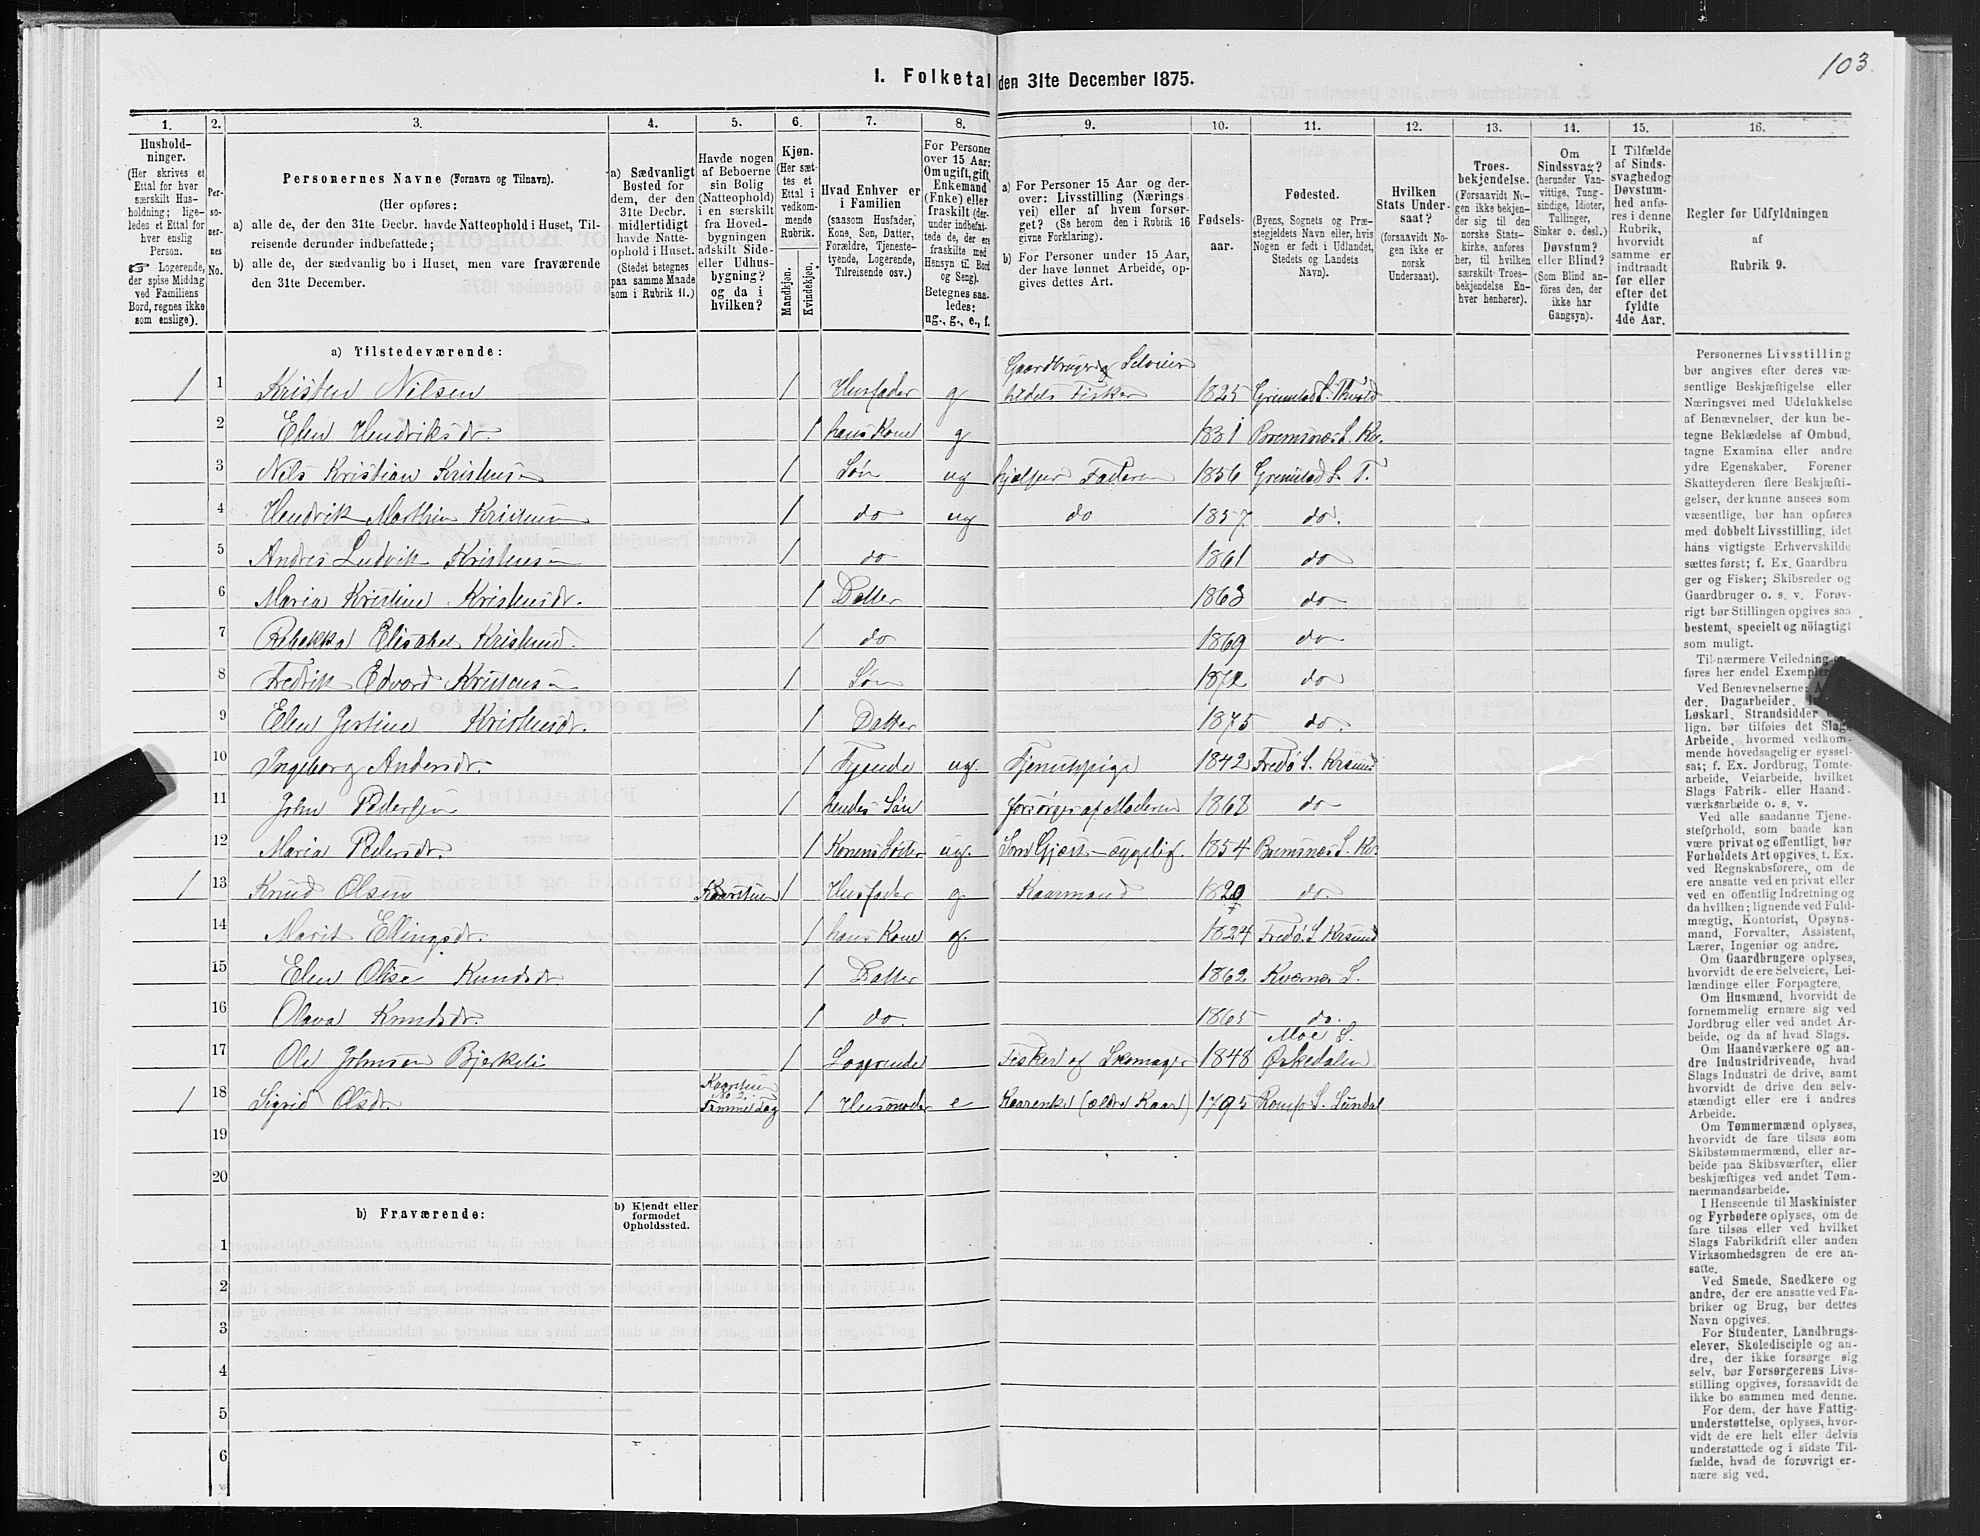 103
I. Folketal den 31te December 1875.
1. 2. 3. 4. 5. 6. 7. 8. 9. 10. 11. 12. 13. 14. 15. 16.
Hushold-
ninger.
(Her skrives et
Ettal for hver
særskilt Hus-
holdning; lige-
ledes et Ettal for
hver enslig
Person.
☞ Logerende,
der spise Middag
ved Familiens
Bord, regnes ikke
som enslige).
Per-
so-
ner-
nes
No.
Personernes Navne (Fornavn og Tilnavn).
(Her opføres:
a) alle de, der den 31te Decbr. havde Natteophold i Huset, Til-
reisende derunder indbefattede;
b) alle de, der sædvanlig bo i Huset, men vare fraværende
den 31te December.
a) Sædvanligt
Bosted for
dem, der den
31te Decbr.
midlertidigt
havde Natte-
ophold i Huset.
(Stedet betegnes
paa samme Maade
som i Rubrik 11.)
Havde nogen
af Beboerne
sin Bolig
(Natteophold)
i en særskilt
fra Hoved-
bygningen
adskilt Side-
eller Udhus-
bygning?
og da i
hvilken?
Kjøn.
(Her sæt-
tes et
Ettal i
vedkom-
mende
Rubrik.
Mandkjøn.
Kvindekjøn.
Hvad Enhver er
i Familien
(saasom Husfader,
Kone, Søn, Datter,
Forældre, Tjeneste-
tyende, Logerende,
Tilreisende osv.)
For Personer
over 15 Aar:
Om ugift, gift,
Enkemand
(Enke) eller
fraskilt (der-
under indbefat-
tede de, der ere
fraskilte med
Hensyn til Bord
og Seng).
Betegnes saa-
ledes:
ug., g., e., f.
a) For Personer 15 Aar og der-
over: Livsstilling (Nærings-
vei) eller af hvem forsør-
get? (Se herom den i Rubrik 16
givne Forklaring).
b) For Personer under 15 Aar,
der have lønnet Arbeide, op-
gives dettes Art.
Fødsels-
aar.
Fødested.
(Byens, Sognets og Præ-
stegjeldets Navn eller, hvis
Nogen er født i Udlandet,
Stedets og Landets
Navn).
Hvilken
Stats Under-
saat?
(forsaavidt No-
gen ikke er
norsk
Undersaat).
Troes-
bekjendelse.
(Forsaavidt No-
gen ikke bekjen-
der sig til den
norske Stats-
kirke, anføres
her, til hvilken
særskilt Troes-
bekjendelse En-
hver henhører).
Om
Sindssvag?
(herunder Van-
vittige, Tung-
sindige, Idioter,
Tullinger,
Sinker o. desl.)
Døvstum?
eller Blind?
(Som Blind an-
føres den, der
ikke har
Gangsyn).
I Tilfælde
af Sinds-
svaghed og
Døvstum-
hed anfø-
res i denne
Rubrik,
hvorvidt
samme er
indtraadt
før eller
efter det
fyldte
4de Aar.
Regler for Udfyldningen
af
Rubrik 9.
a) Tilstedeværende:
1 1 Kristen Nilsen 1 Husfader g Gaardbruger Selveier hldels Fisker 1825 Grimstad S.
2 Elen Hendriksdr. 1 hans Kone g 1831 Bremsnæs S. Kv.
3 Nils Kristian Kristens 1 Søn ug hjælper Faderen 1856 Grimstad S. T.
4 Hendrik Marthin Kristens 1 do ug do 1857 do.
5 Andres Ludvik Kristens 1 do 1861 do
6 Maria Kristine Kristensdr. 1 Datter 1863 do
7 Rebekka Elisabet Kristensd. 1 do 1869 do
8 Fredrik Edvard Kristens 1 Søn 1872 do
9 Elen Jestine Kristensdr. 1 Datter 1875 do.
10 Ingeborg Andersdr. 1 Tjende ug. Tjenestpige 1842 Fredø S. Krsund
11 John Pedersen 1 hendes Søn forsørges af Moderen 1868 do
12 Maria Pedersdr. 1 Konens Søster ug. Som Gjæst - sygelig. 1854 Bremsnæs S. Kv.
1 13 Knud Olsen Kaarstuen 1 Husfader g Kaarmand 1820 do.
14 Marit Ellingsdr. 1 hans Kone g. 1824 Fredø. S. Krsund
15 Elen Olise Knudsdr 1 Datter 1862 Kvernes S.
16 Olava Knudsdr. 1 do. 1865 do.
17 Ole Johnsen Bjerkeli 1 Logerende Fisker og Skomager 1848 Moe S. Ørkedalen
1 18 Sigrid Olsdr. Kaarstuen No 2. 1 Husmoder e Kaarenke (ældre Kaar) 1795 Romfo S. Sundal
19
20
b) Fraværende:
b) Kjendt eller
formodet
Opholdssted.
1
2
3
4
5
6
Personernes Livsstilling
bør angives efter deres væ-
sentlige Beskjæftigelse eller
Næringsvei med Udelukkelse
af Benævnelser, der kun be-
tegne Beklædelse af Ombud,
tagne Examina eller andre
ydre Egenskaber. Forener
Skatteyderen flere Beskjæfti-
gelser, der kunne ansees som
væsentlige, bør han opføres
med dobbelt Livsstilling, idet
hans vigtigste Erhvervskilde
sættes først; f. Ex. Gaardbru-
ger og Fisker; Skibsreder og
Gaardbruger o. s. v. Forøv-
rigt bør Stillingen opgives saa
bestemt, specielt og nøiagtigt
som muligt.
Til nærmere Veiledning
føres her endel Exempler
Ved Benævnelserne:
der, Dagarbeider,
Løskarl, Strandsidder
lign. bør tilføies det Slags
Arbeide, hvormed vedkom-
mende hovedsagelig er syssel-
sat; f. Ex. Jordbrug, Tomte-
arbeide, Veiarbeide, hvilket
Slags Fabrik- eller Haand-
værksarbeide o. s. v.
Ved alle saadanne Tjene-
steforhold, som baade kan
være privat og offentligt, bør
Forholdets Art opgives, t. Ex.
ved Regnskabsførere, om de
ere ansatte ved en privat eller
ved en offentlig Indretning og
da hvilken; lignende ved Fuld-
mægtig, Kontorist, Opsyns-
mand, Forvalter, Assistent,
Lærer, Ingeniør og andre.
Om Gaardbrugere oplyses,
hvorvidt de ere Selveiere, Lei-
lændinge eller Forpagtere.
Om Husmænd, hvorvidt de
fornemmelig ernære sig ved
Jordbrug eller ved andet Ar-
beide, og da af hvad Slags.
Om Haandværkere og an-
dre Industridrivende, hvad
Slags Industri de drive, samt
hvorvidt de drive den selv-
stændigt eller ere i andres
Arbeide.
Om Tømmermænd oplyses,
hvorvidt de fare tilsøs som
Skibstømmermænd, eller ar-
beide paa Skibsværfter, eller
beskjæftiges ved andet Tøm-
mermandsarbeide.
I Henseende til Maskinister
og Fyrbødere oplyses, om de
fare tilsøs eller ved hvilket
Slags Fabrikdrift eller anden
Virksomhedsgren de ere an-
satte.
Ved Smede, Snedkere og
andre, der ere ansatte ved Fa-
briker og Brug, bør dettes
Navn opgives.
For Studenter, Landbrugs-
elever, Skoledisciple og an-
dre, der ikke forsørge sig
selv, bør Forsørgerens Livs-
stilling opgives, forsaavidt de
ikke bo sammen med denne.
For dem, der have Fattig-
understøttelse, oplyses, hvor-
vidt de ere helt eller delvis
understøttede og i sidste Til-
fælde, hvad de forøvrigt er-
nære sig ved.